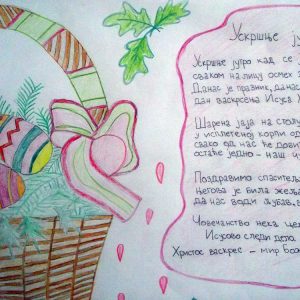 Ускршње
Ускршње јутро кад се
сваком на лицу осмех
Данас је празник, данас
дан васкрсења Исуса
Шарена јаја на столу
у исплетеној корпи
свако од нас ће
остаће једно – наш
Поздравимо спаситеља
његова је била
да нас води љубав,
Човечанство нека
Исусово следи дело
Христос васкрес – мир